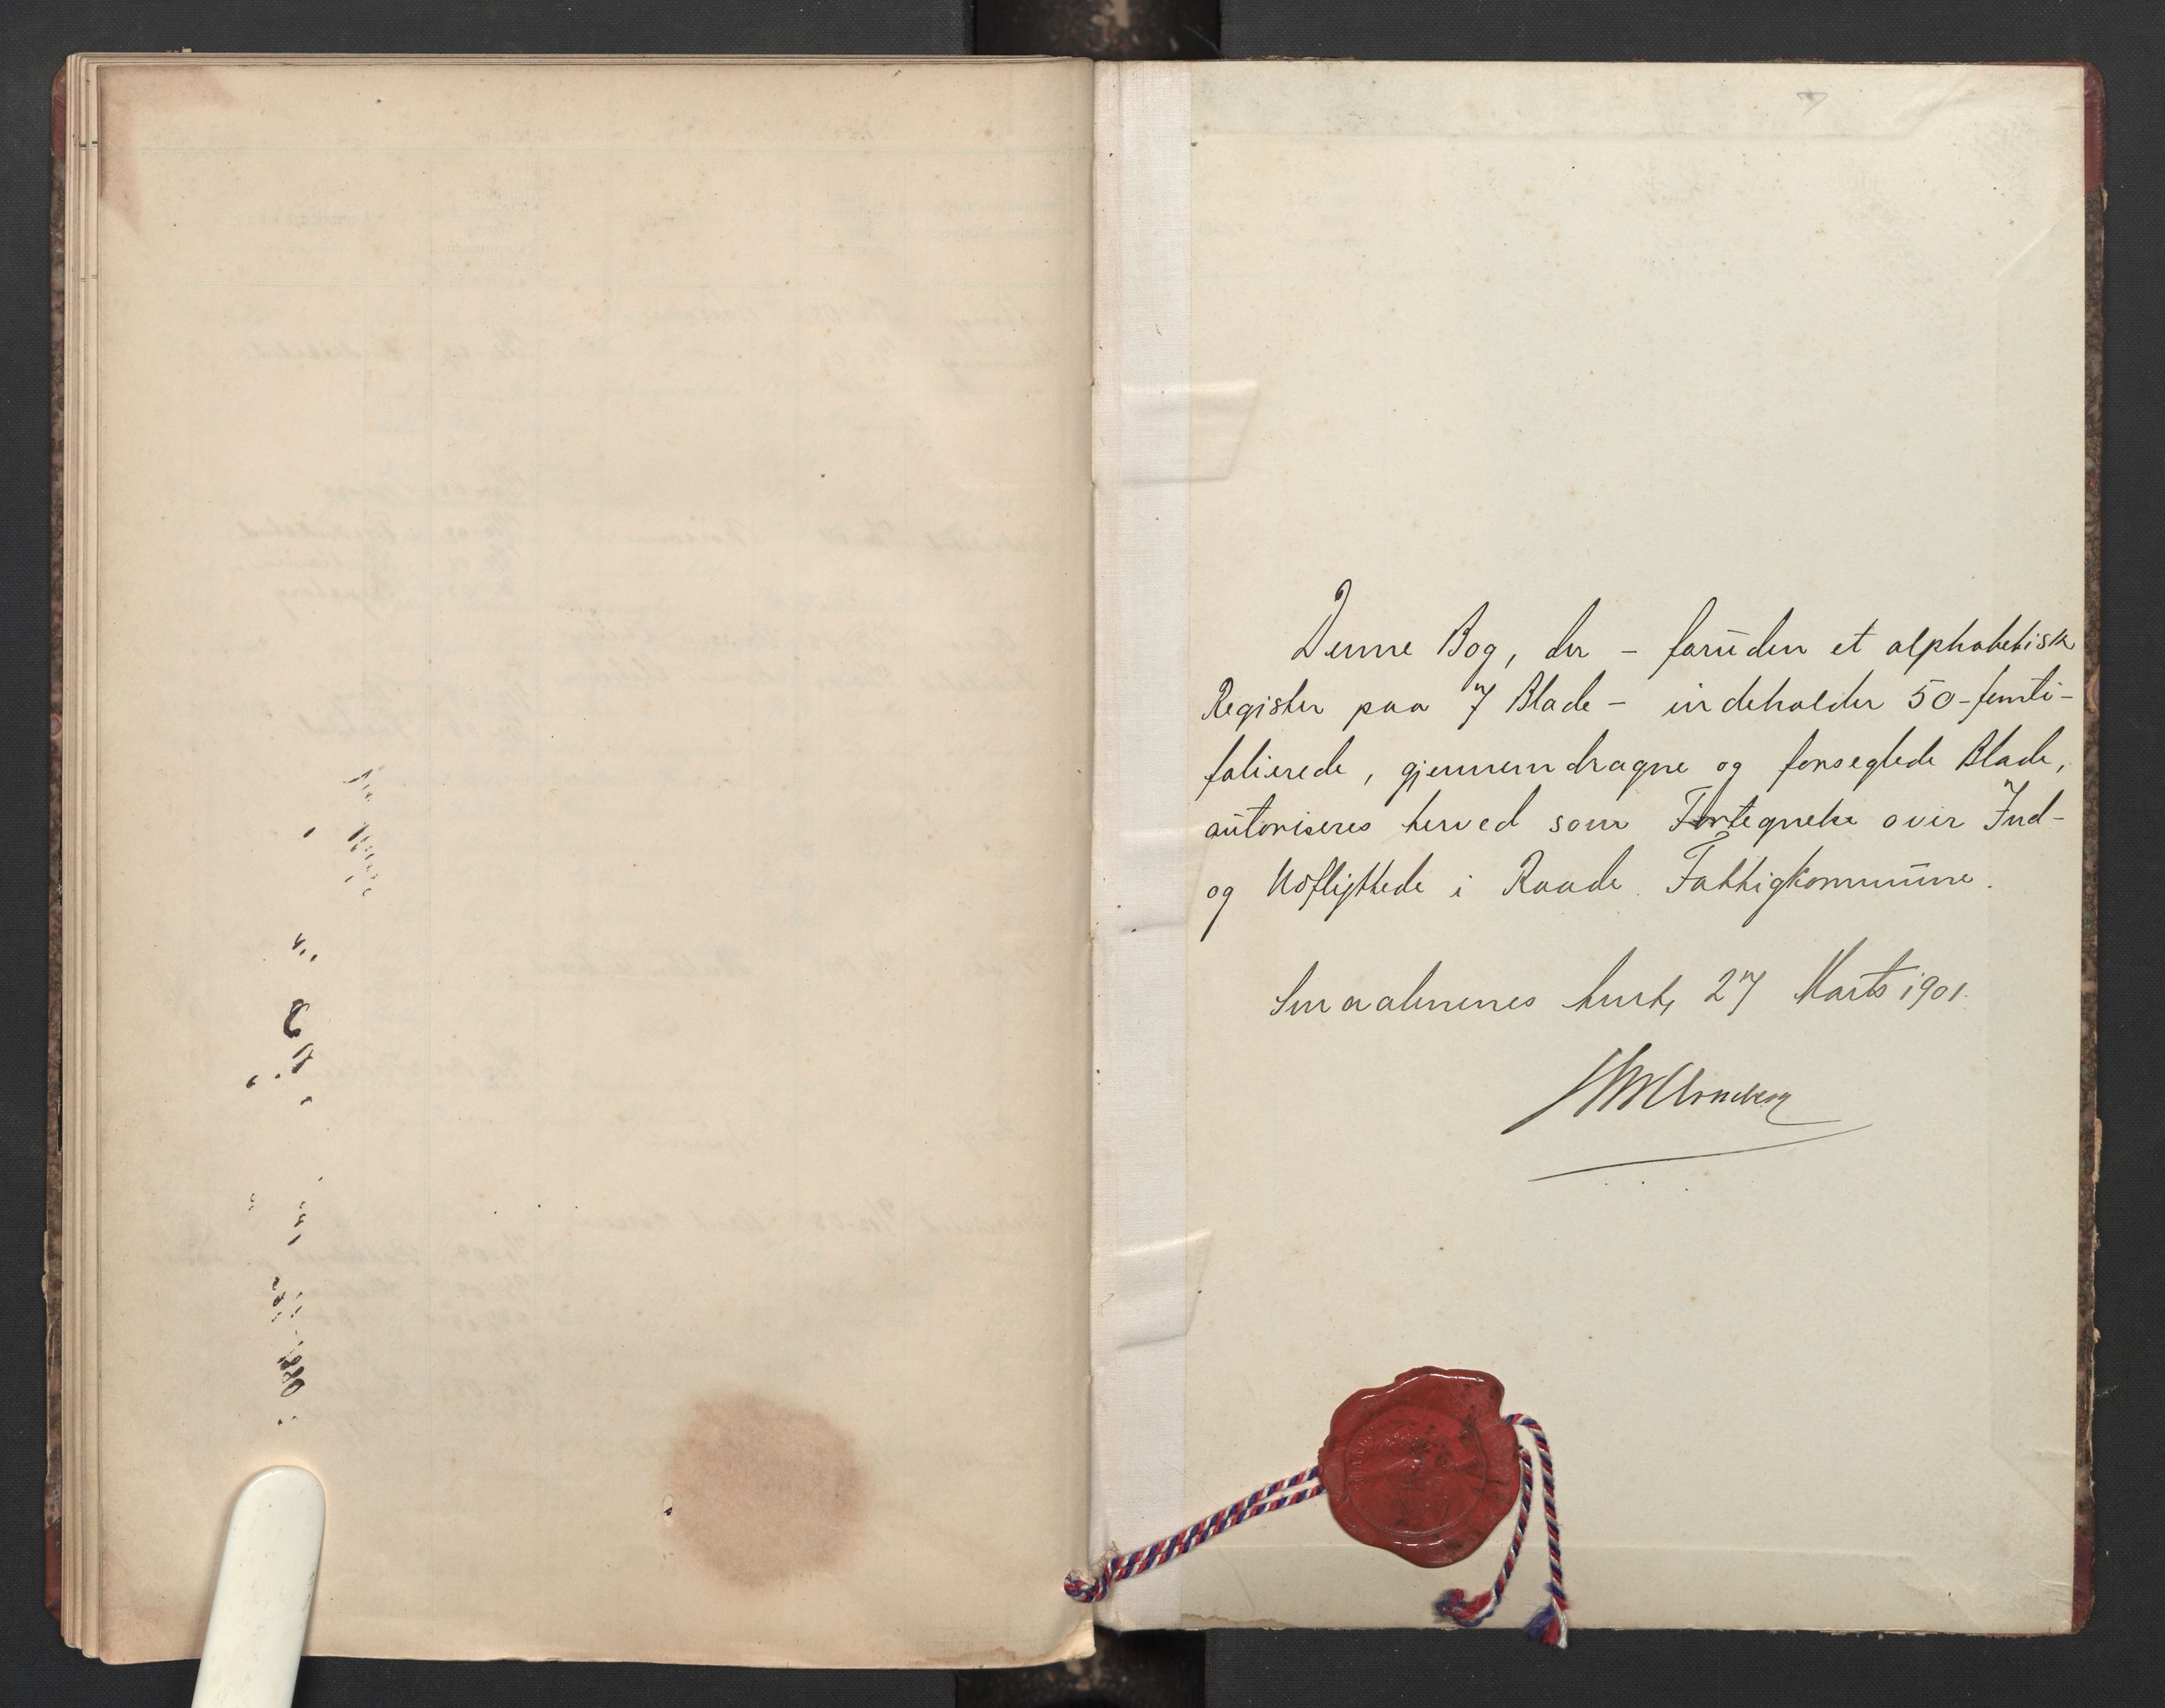 Denne Bog, der – foruden et alphabetisk
Register paa 7 Blade – indeholder 50 – femti –
folierede, gjennemdragne og forseglede Blade,
autoriseres herved som Fortegnelse over Ind-
og Udflyttede i Raade Fattigkommune.
Smaalenenes Amt, 27 Marts 1901.